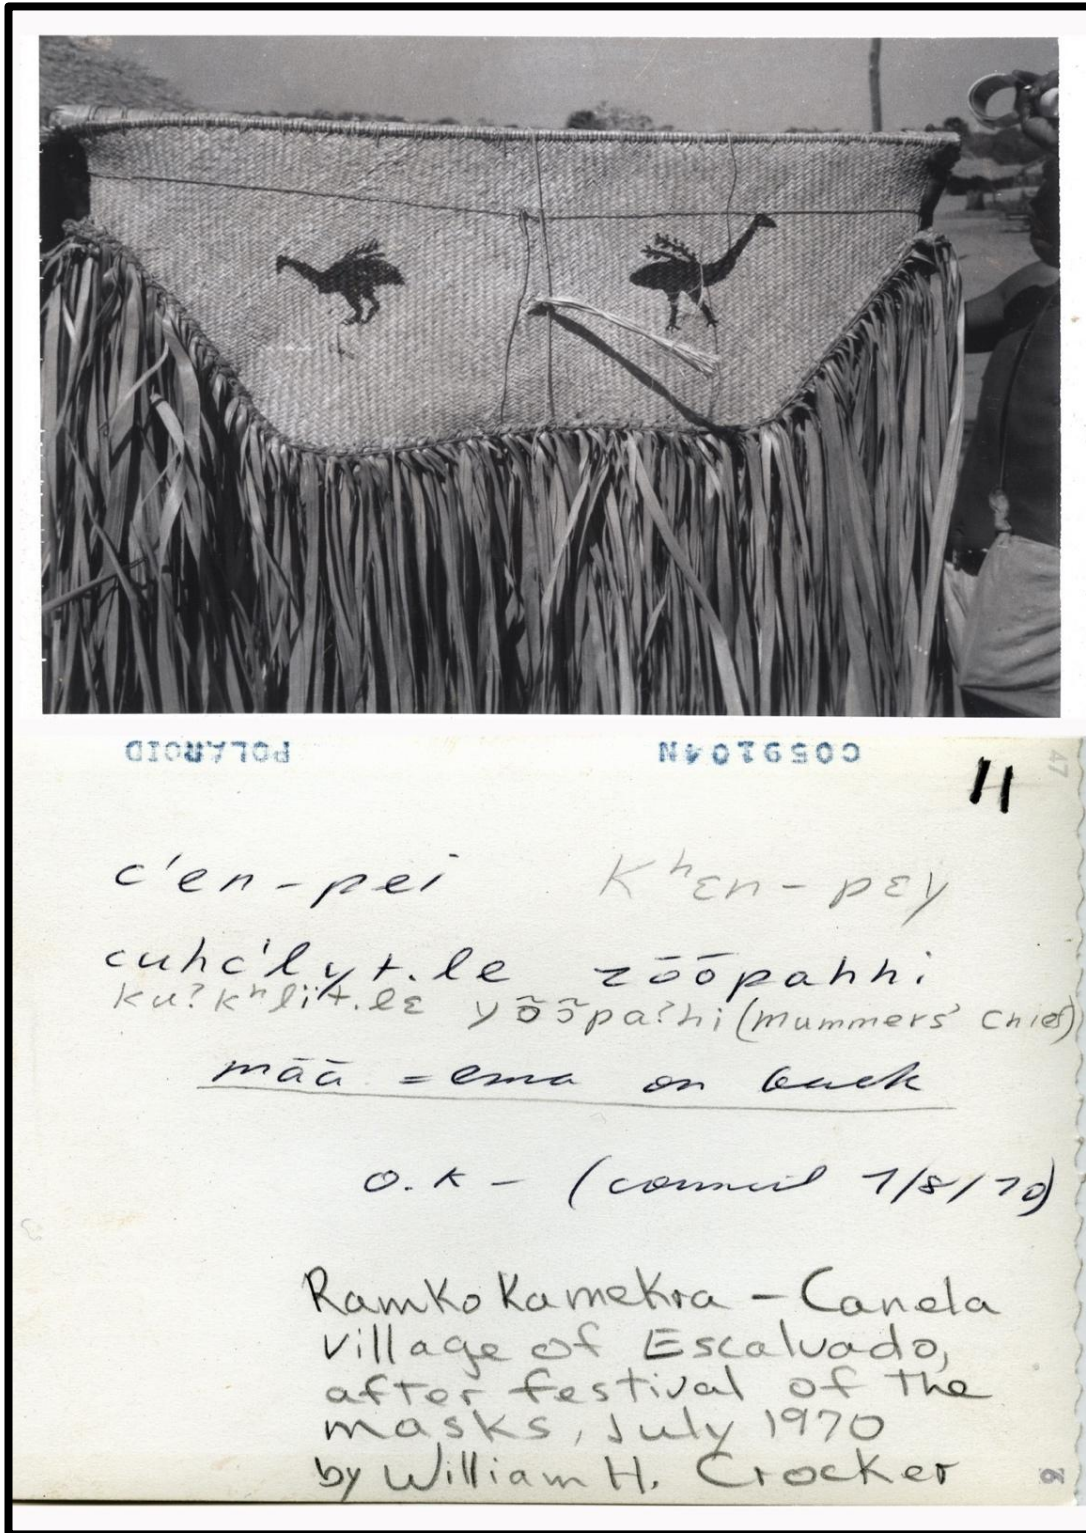 POLAROID C059104N
11
47
c'en-pei Kʰɛn-pɛy
cuhc'lyt.le zõõpahhi
Ku?kʰlit.lɛ yõõpa?hi (Mummers' Chief)
mãã = ema on back
o.k - (council 7/8/70)
Ramkokamekra - Canela
village of Escalvado,
after festival of the
masks, July 1970
by William H. Crocker